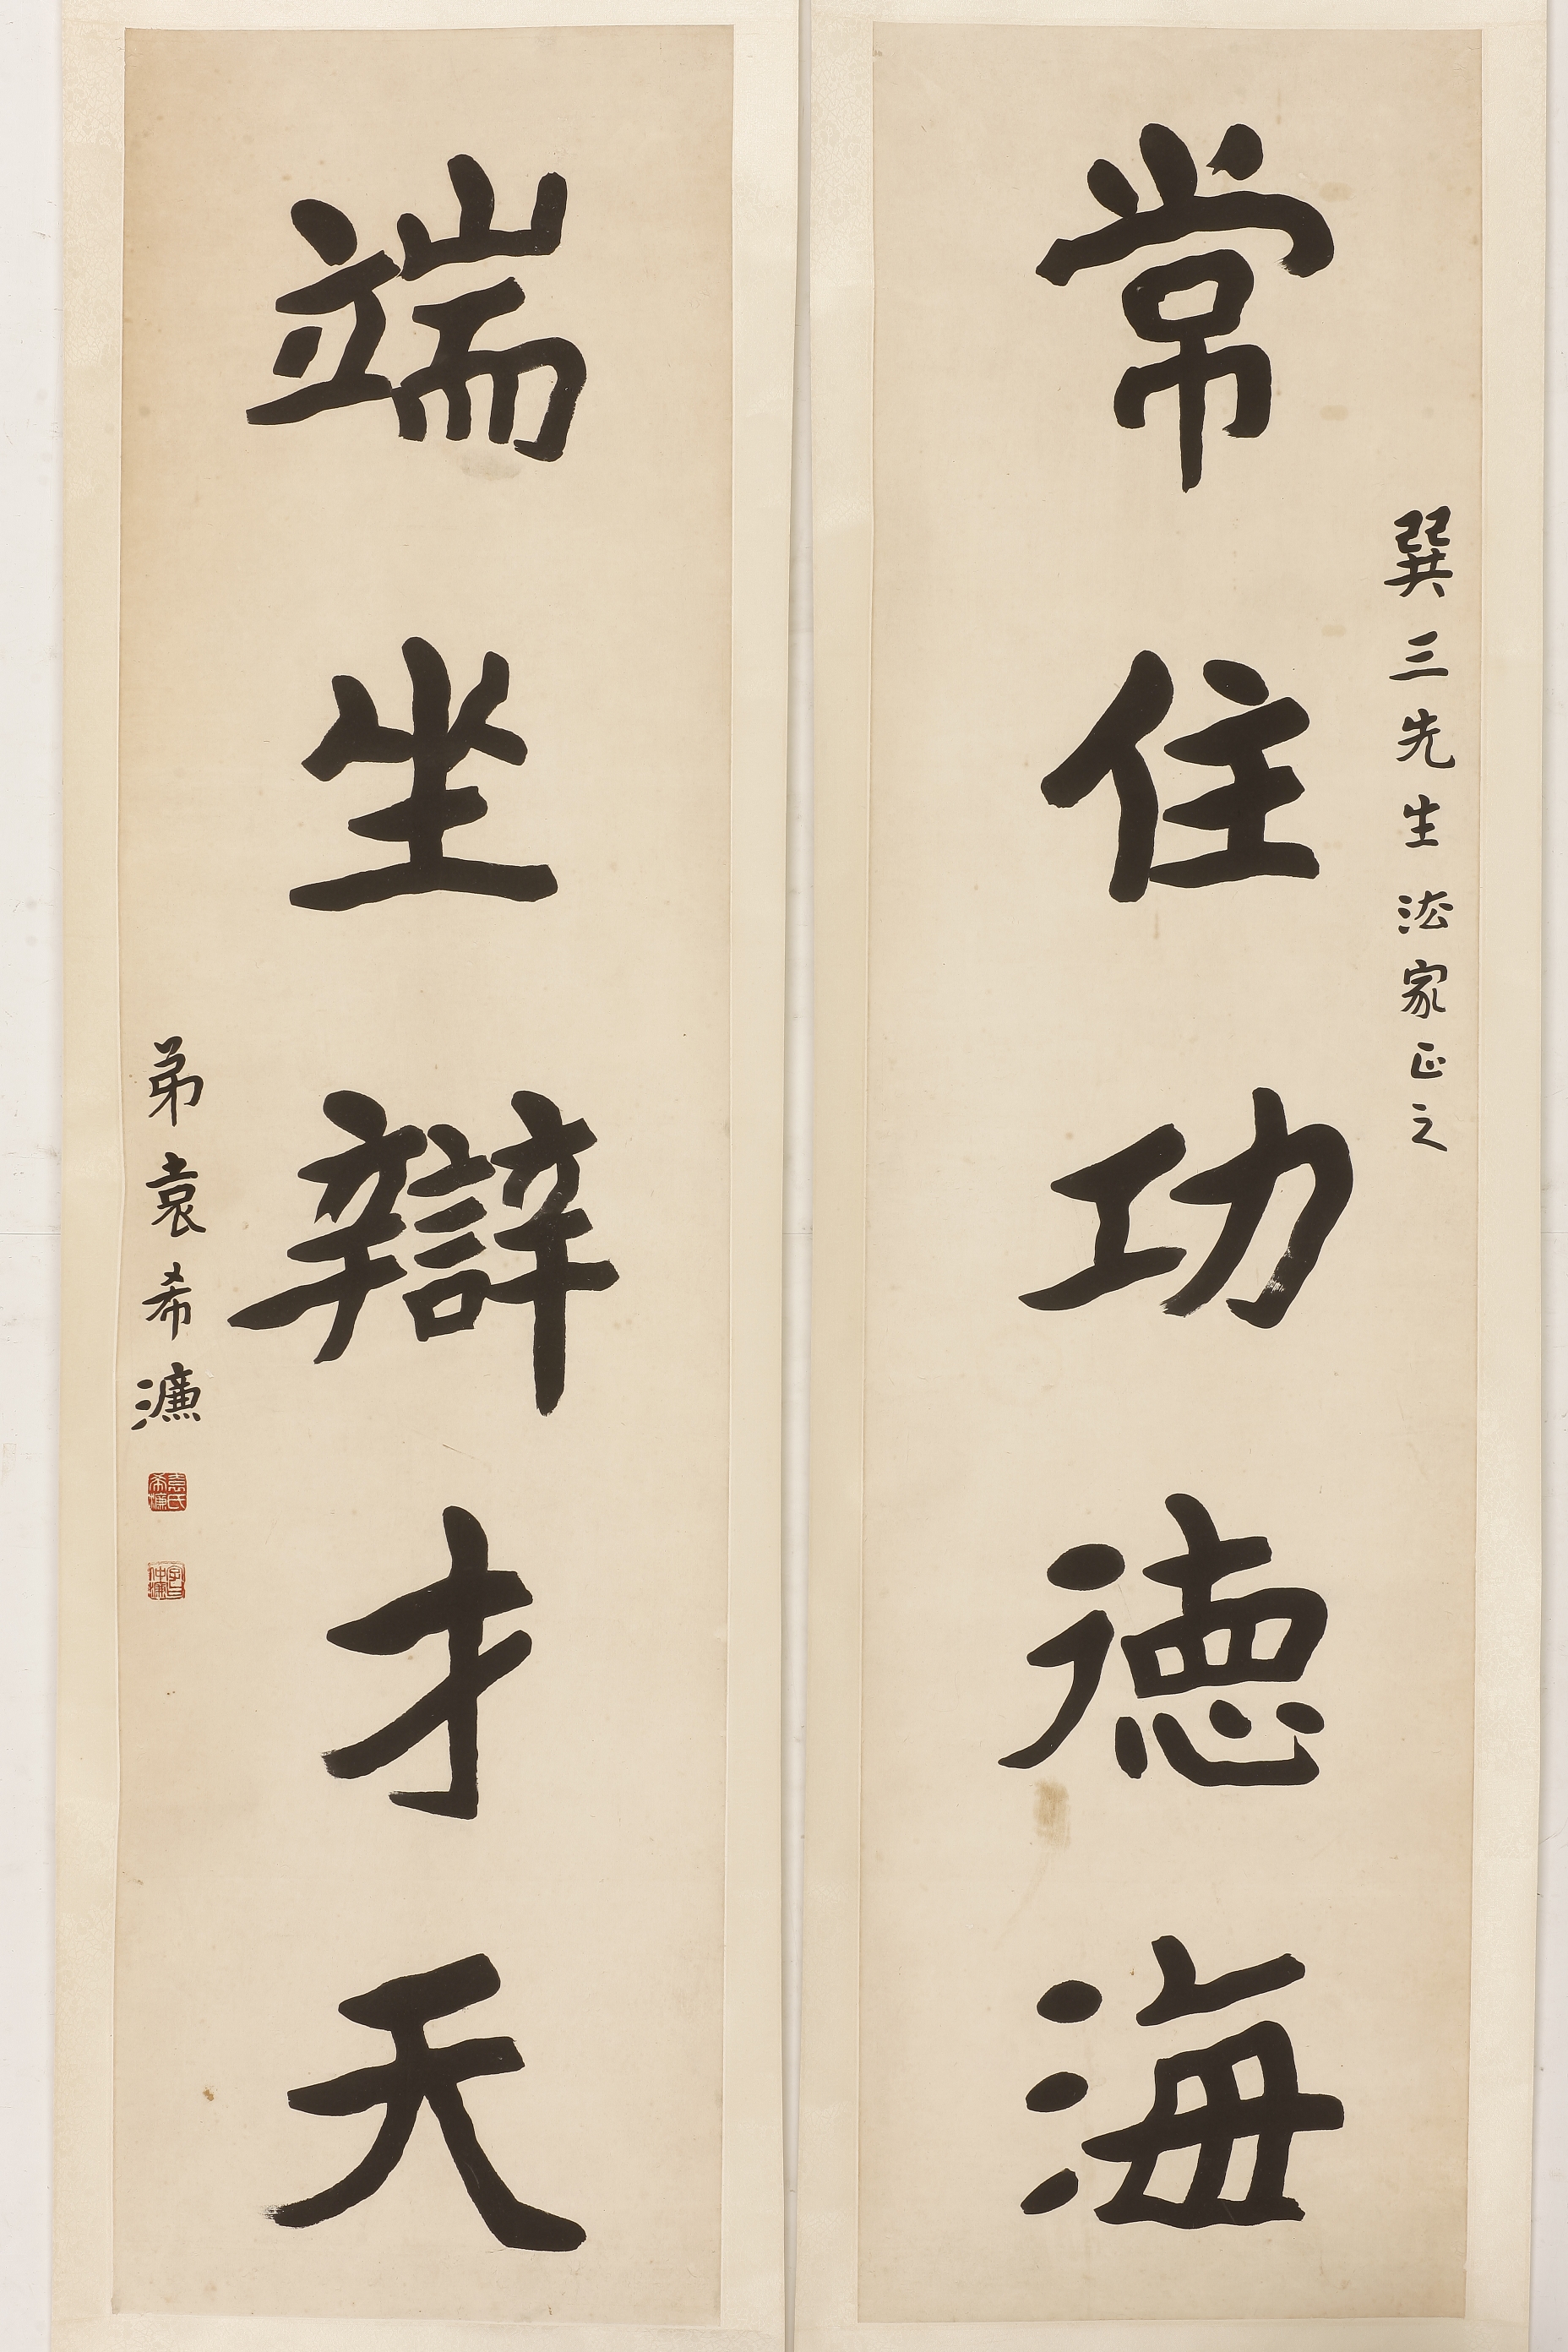 巽三先生法家正之
常住功德海
端坐辯才天
弟袁希濂
袁氏希濂
字曰仲濂